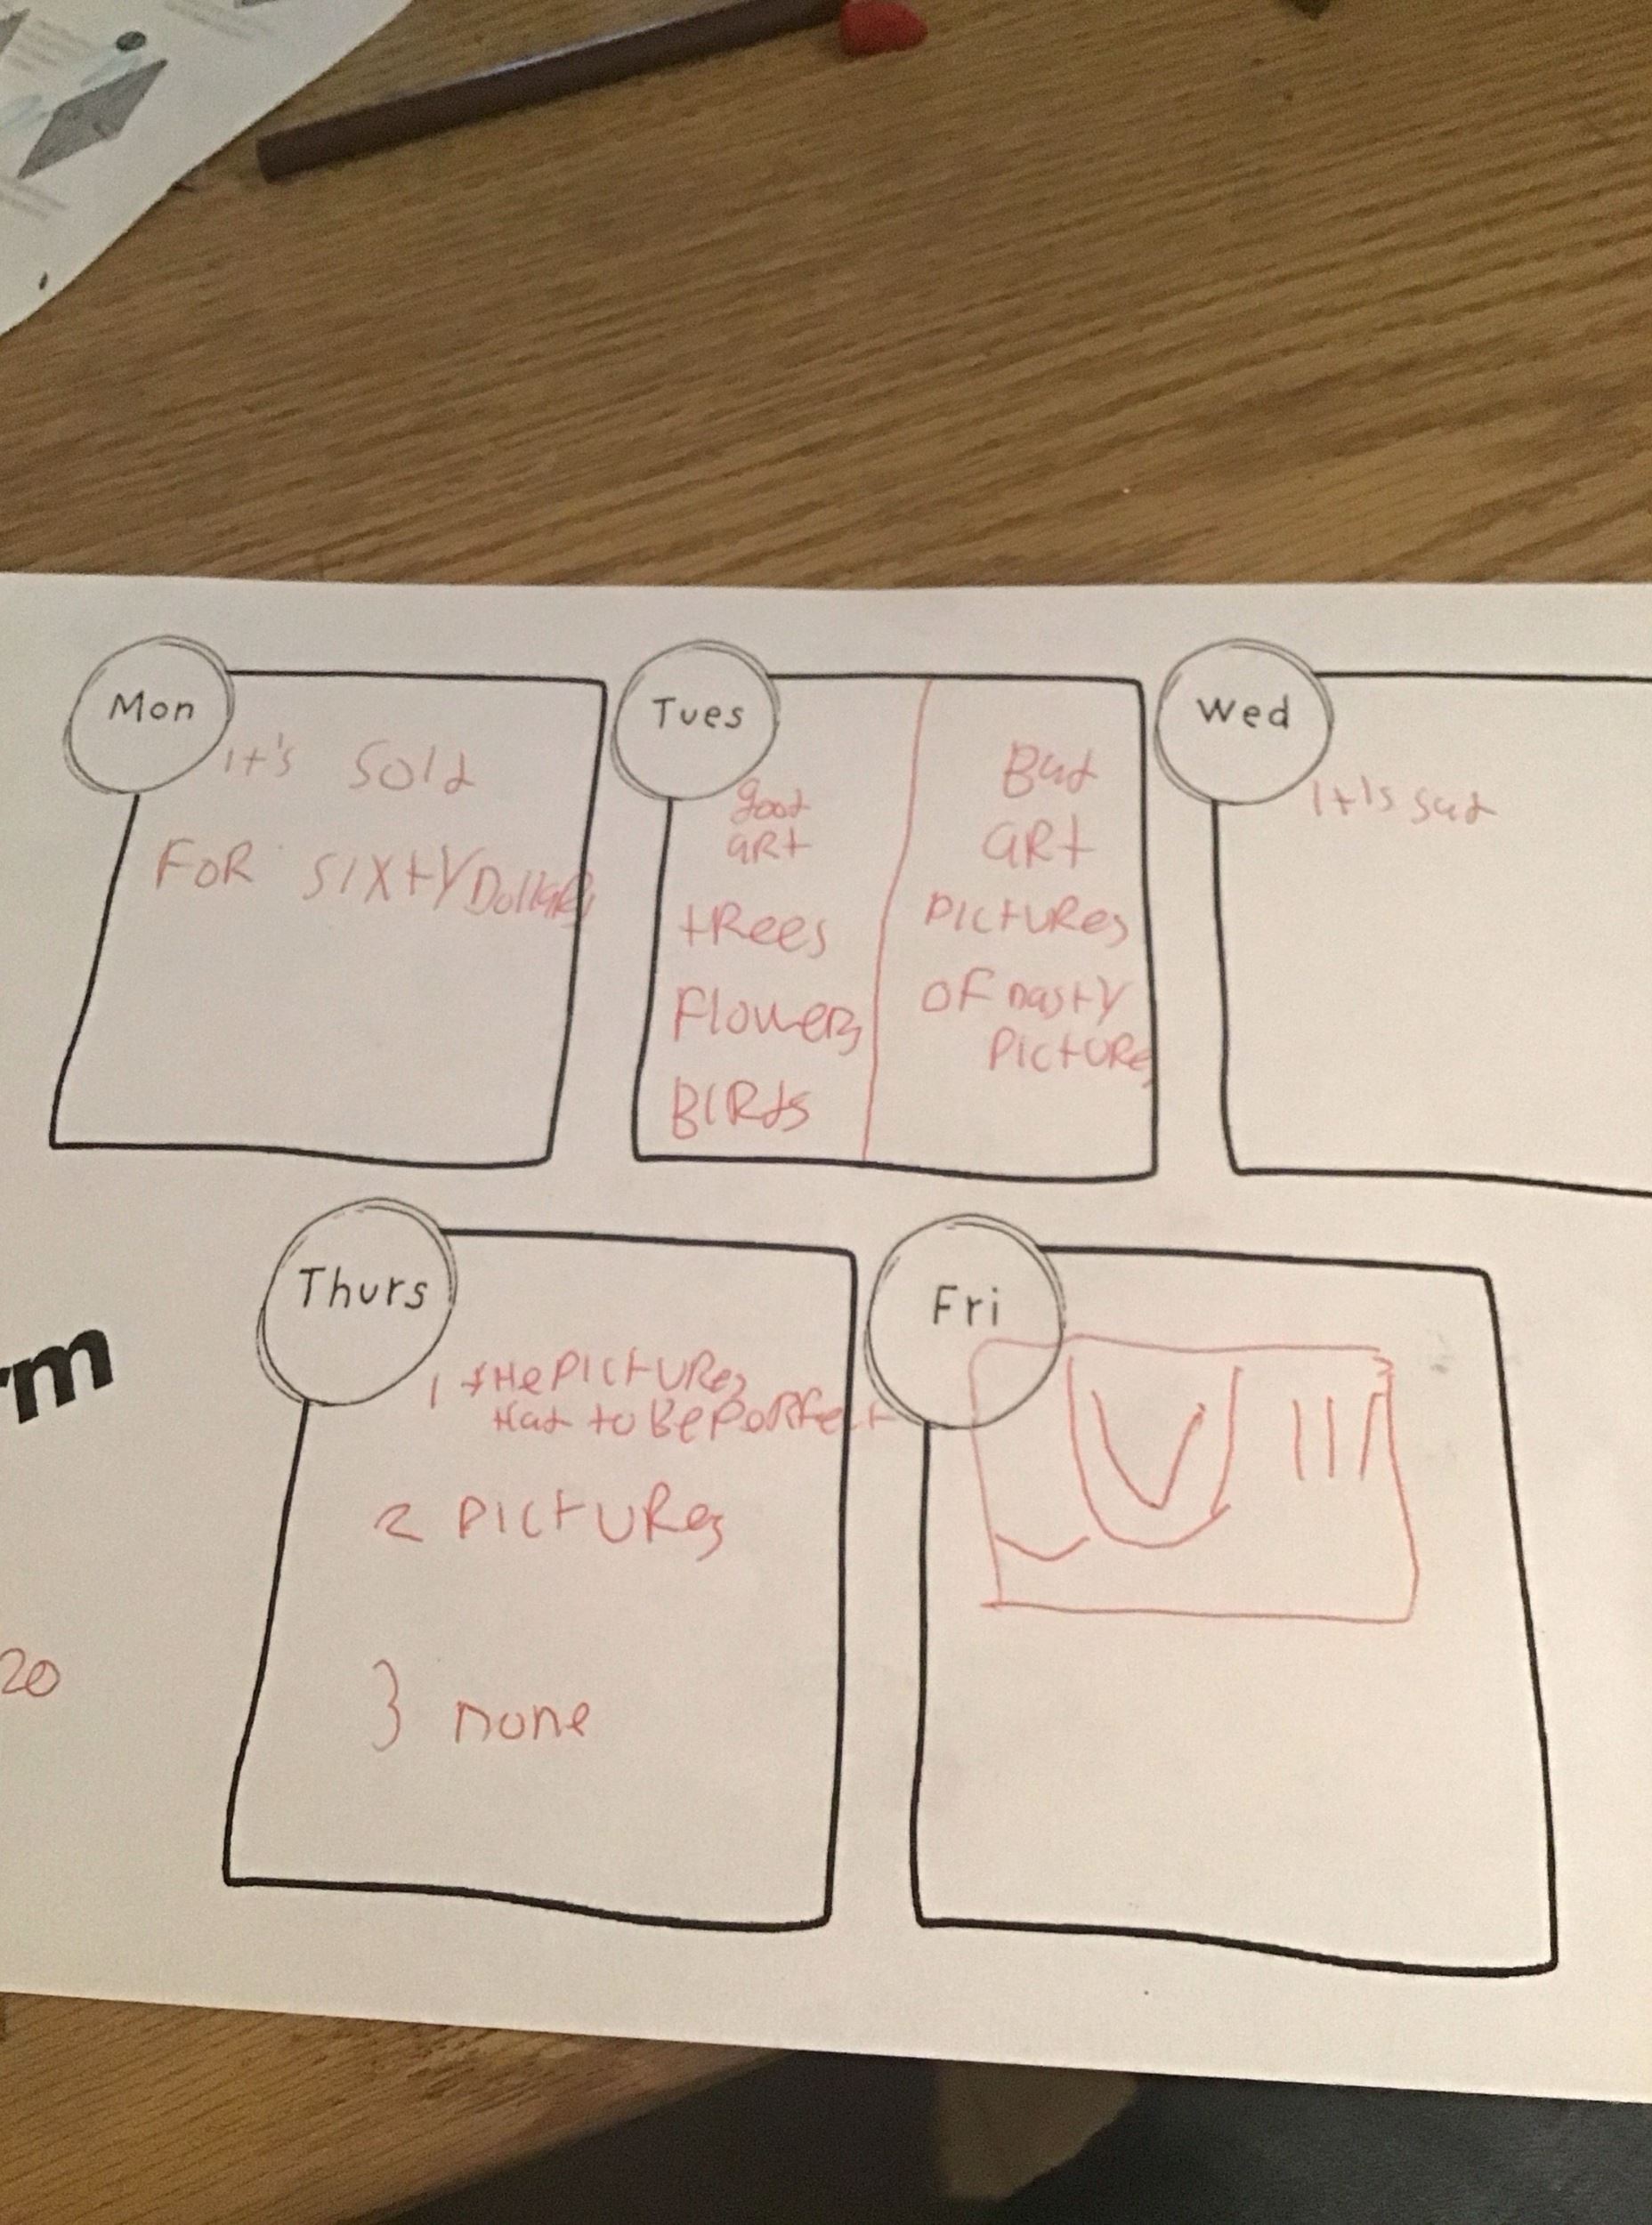 Mon
it's sold
FOR sixty Dollars
Tues
good
art
trees
Flowers
BIRds
Bad
art
PICtURes
OF nasty
PICtURes
Wed
It's sad
Thurs
1 tHe PICtURes
Had to Be PoRfect
2 PICtURes
3 none
Fri
rm
20